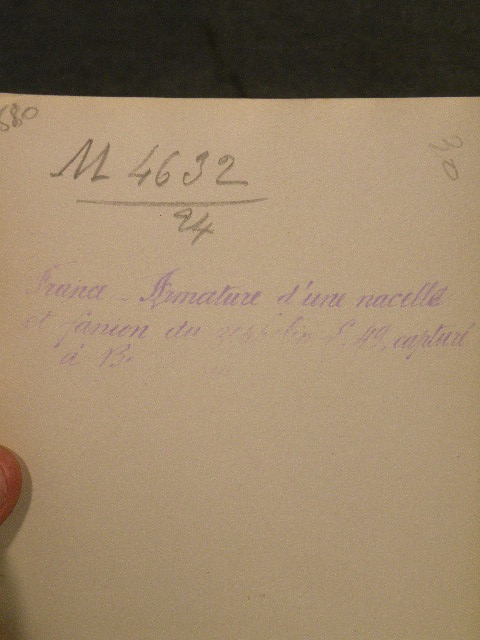 680
30
M 4632
24
France - Armature d'une nacelle
et fanion du zeppelin L 49, capturé
à B.